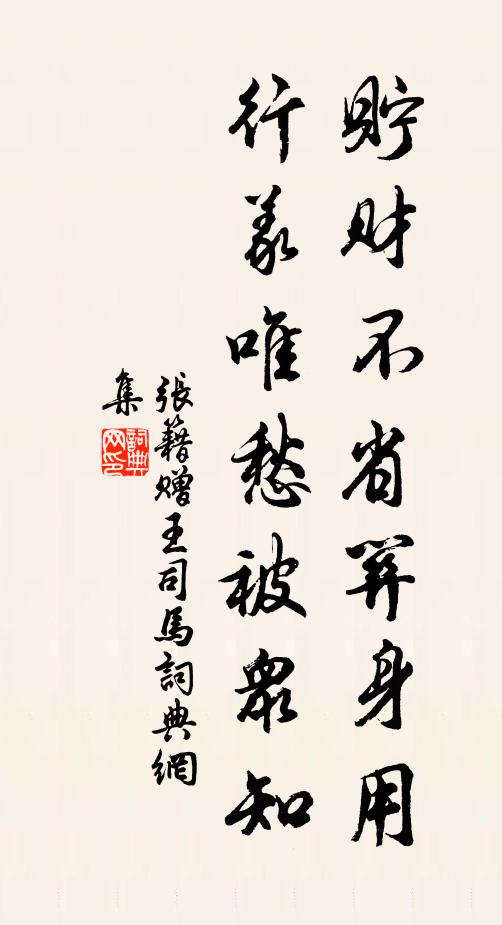 貯財不省算身用
行義唯愁被眾知
張籍贈王司馬詞典網
集
詞典
网印